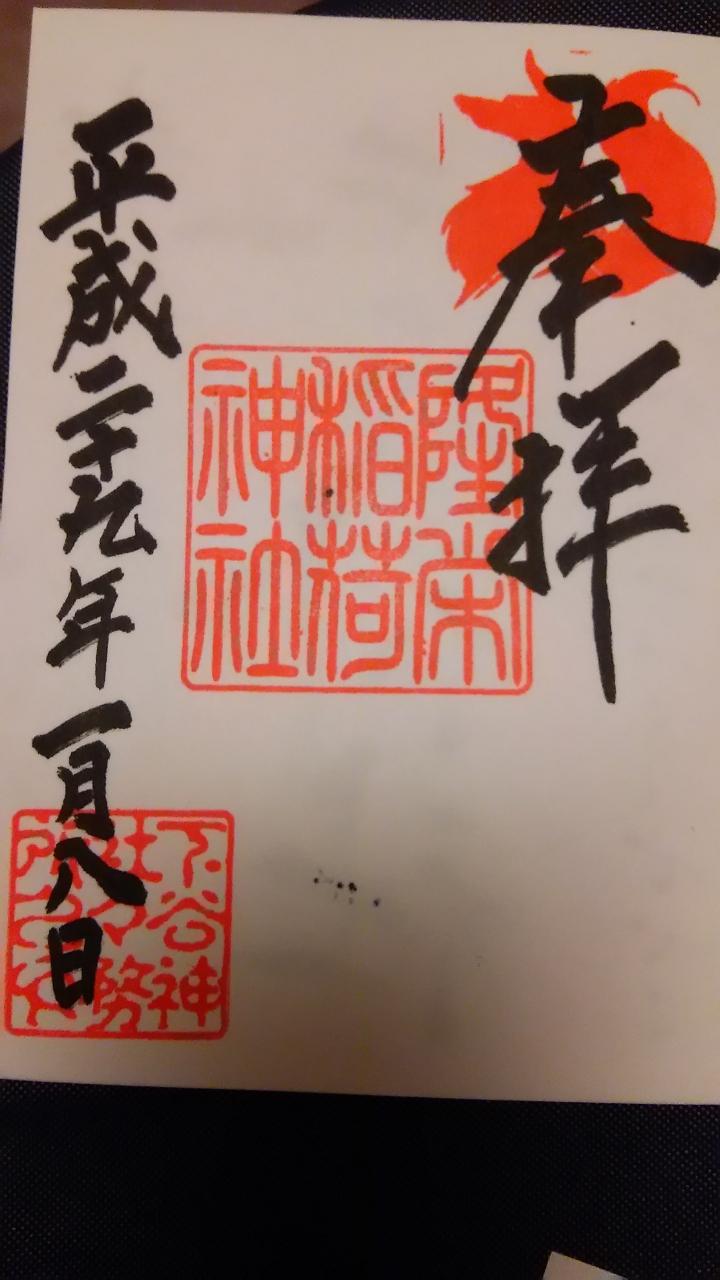 奉拝
隆栄
稲荷
神社
平成二十九年一月八日
下谷神
社々務